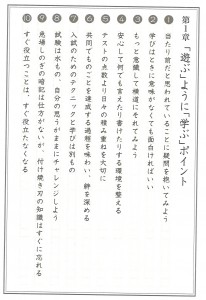 第1章 「遊ぶ」ように「学ぶ」ポイント
❶ 当たり前だと思われていることに疑問を抱いてみよう
❷ 学びはときに意味がなくても面白ければいい
❸ もっと意識して横道にそれてみよう
❹ 安心して何でも言えたり書けたりする環境を整える
❺ テストの点数より日々の積み重ねを大切に
❻ 共同でものごとを達成する過程を味わい、絆を深める
❼ 入試のためのテクニックと学びは別もの
❽ 試験は水もの。自分の思うがままにチャレンジしよう
❾ 急場しのぎの暗記は仕方がないが、付け焼き刃の知識はすぐに忘れる
❿ すぐ役立つことは、すぐ役立たなくなる